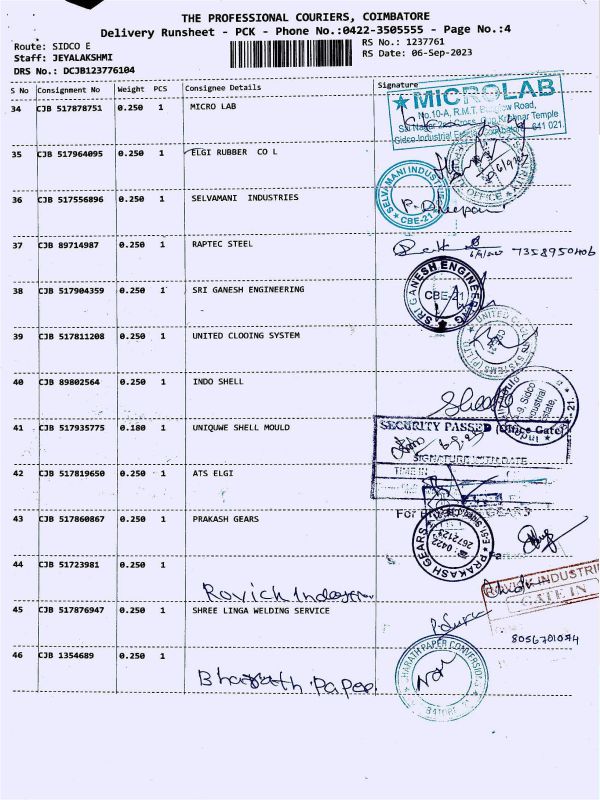 THE PROFESSIONAL COURIERS, COIMBATORE
Delivery Runsheet - PCK - Phone No.:0422-3505555 - Page No.:4
Route: SIDCO E
RS No.: 1237761
Staff: JEYALAKSHMI
RS Date: 06-Sep-2023
DRS No.: DCJB123776104
S No Consignment No Weight PCS Consignee Details Signature
34 CJB 517878751 0.250 1 MICRO LAB
MICROLAB
No.10-A, R.M.T. Bungalow Road,
Sidco Industrial Estate, Coimbatore - 641 021
35 CJB 517964095 0.250 1 ELGI RUBBER CO L
SECURITY OFFICE
36 CJB 517556896 0.250 1 SELVAMANI INDUSTRIES
SELVAMANI INDUSTRIES
CBE-21
37 CJB 89714987 0.250 1 RAPTEC STEEL
7358950406
38 CJB 517904359 0.250 1 SRI GANESH ENGINEERING
SRI GANESH ENGINEERING
CBE-21
39 CJB 517811208 0.250 1 UNITED CLOOING SYSTEM
40 CJB 89802564 0.250 1 INDO SHELL
41 CJB 517935775 0.180 1 UNIQUWE SHELL MOULD
SECURITY PASSED (Office Gate)
SIGNATURE WITH DATE
TIME IN
42 CJB 517819650 0.250 1 ATS ELGI
43 CJB 517860867 0.250 1 PRAKASH GEARS
PRAKASH GEARS
0422
2672123
44 CJB 51723981 0.250 1
Rovick
ROVICK INDUSTRI
GATE IN
45 CJB 517876947 0.250 1 SHREE LINGA WELDING SERVICE
8056701074
46 CJB 1354689 0.250 1
Bharath Paper
BHARATH PAPER CONVERSION